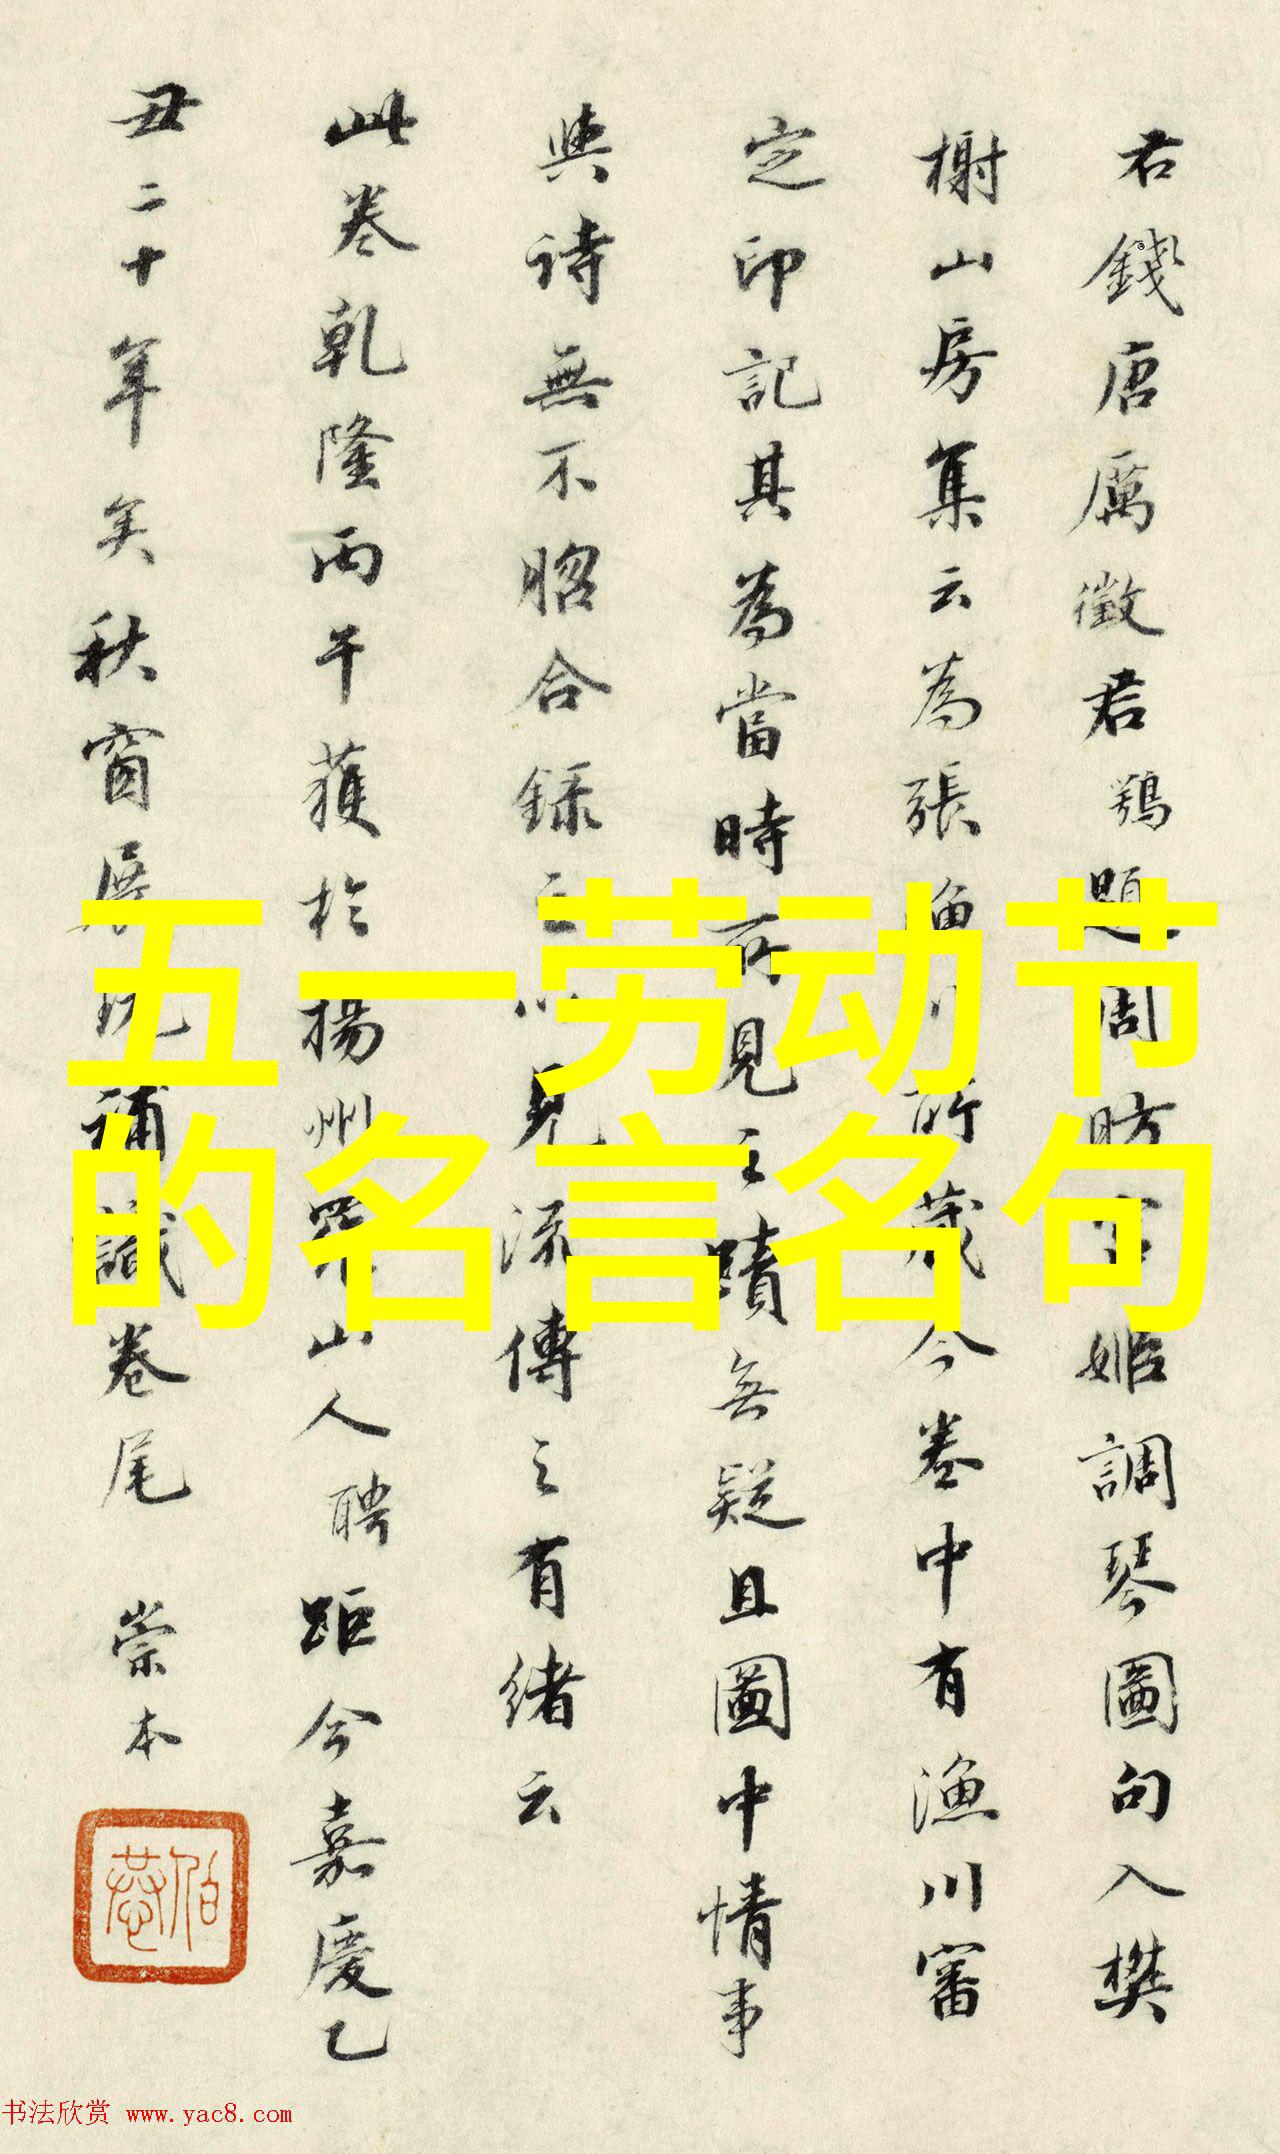 君錢唐厲徵君鶚題周昉宮姬調琴圖句入樊
榭山房集云為張漁川所藏今卷中有漁川審
定印記其為當時所見之蹟無疑且圖中情事
與詩無不脗合錄之以見流傳之有緒云
此卷乾隆丙午獲於揚州羅山人聘距今嘉慶乙
丑二十年矣秋窗展玩補識卷尾 崇本
五一劳动节
的名言名句
伯
书法欣赏 www.yac8.com